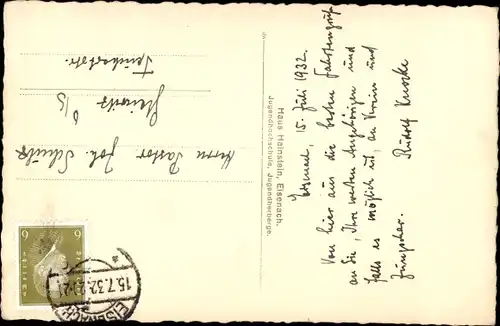 Haus Hainstein, Eisenach.
Jugendhochschule, Jugendherberge.
Eisenach, 15. Juli 1932.
Von hier aus die besten Fahrtengrüße
an Sie, Ihre werten Angehörigen und
falls es möglich ist, den Verein und
Jungschar.
Rudolf
Herrn Pastor Joh. Schulz
Gleiwitz
O/S
6 6
EISENACH
15.7.32